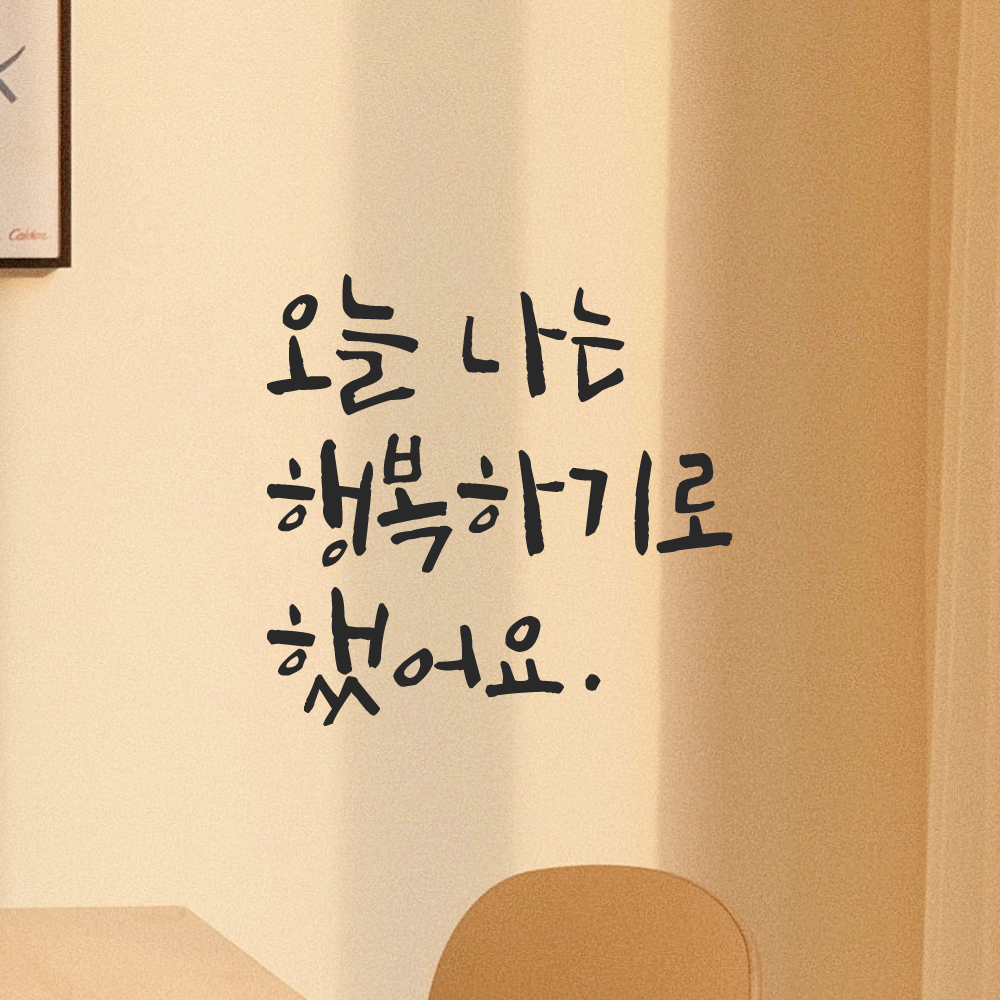 오늘 나는
행복하기로
했어요.
Calder